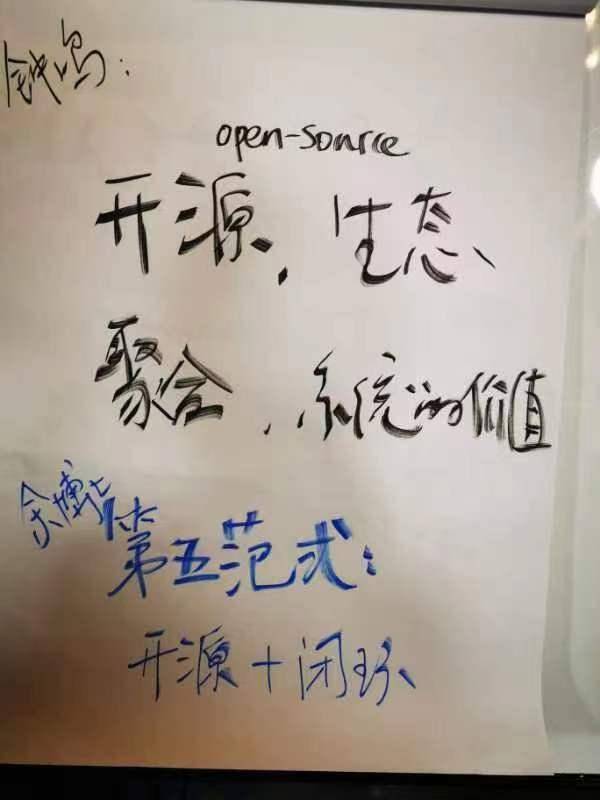 钱鸣:
open-source
开源,生态、
聚合,系统的价值
余博士
第五范式:
开源+闭环